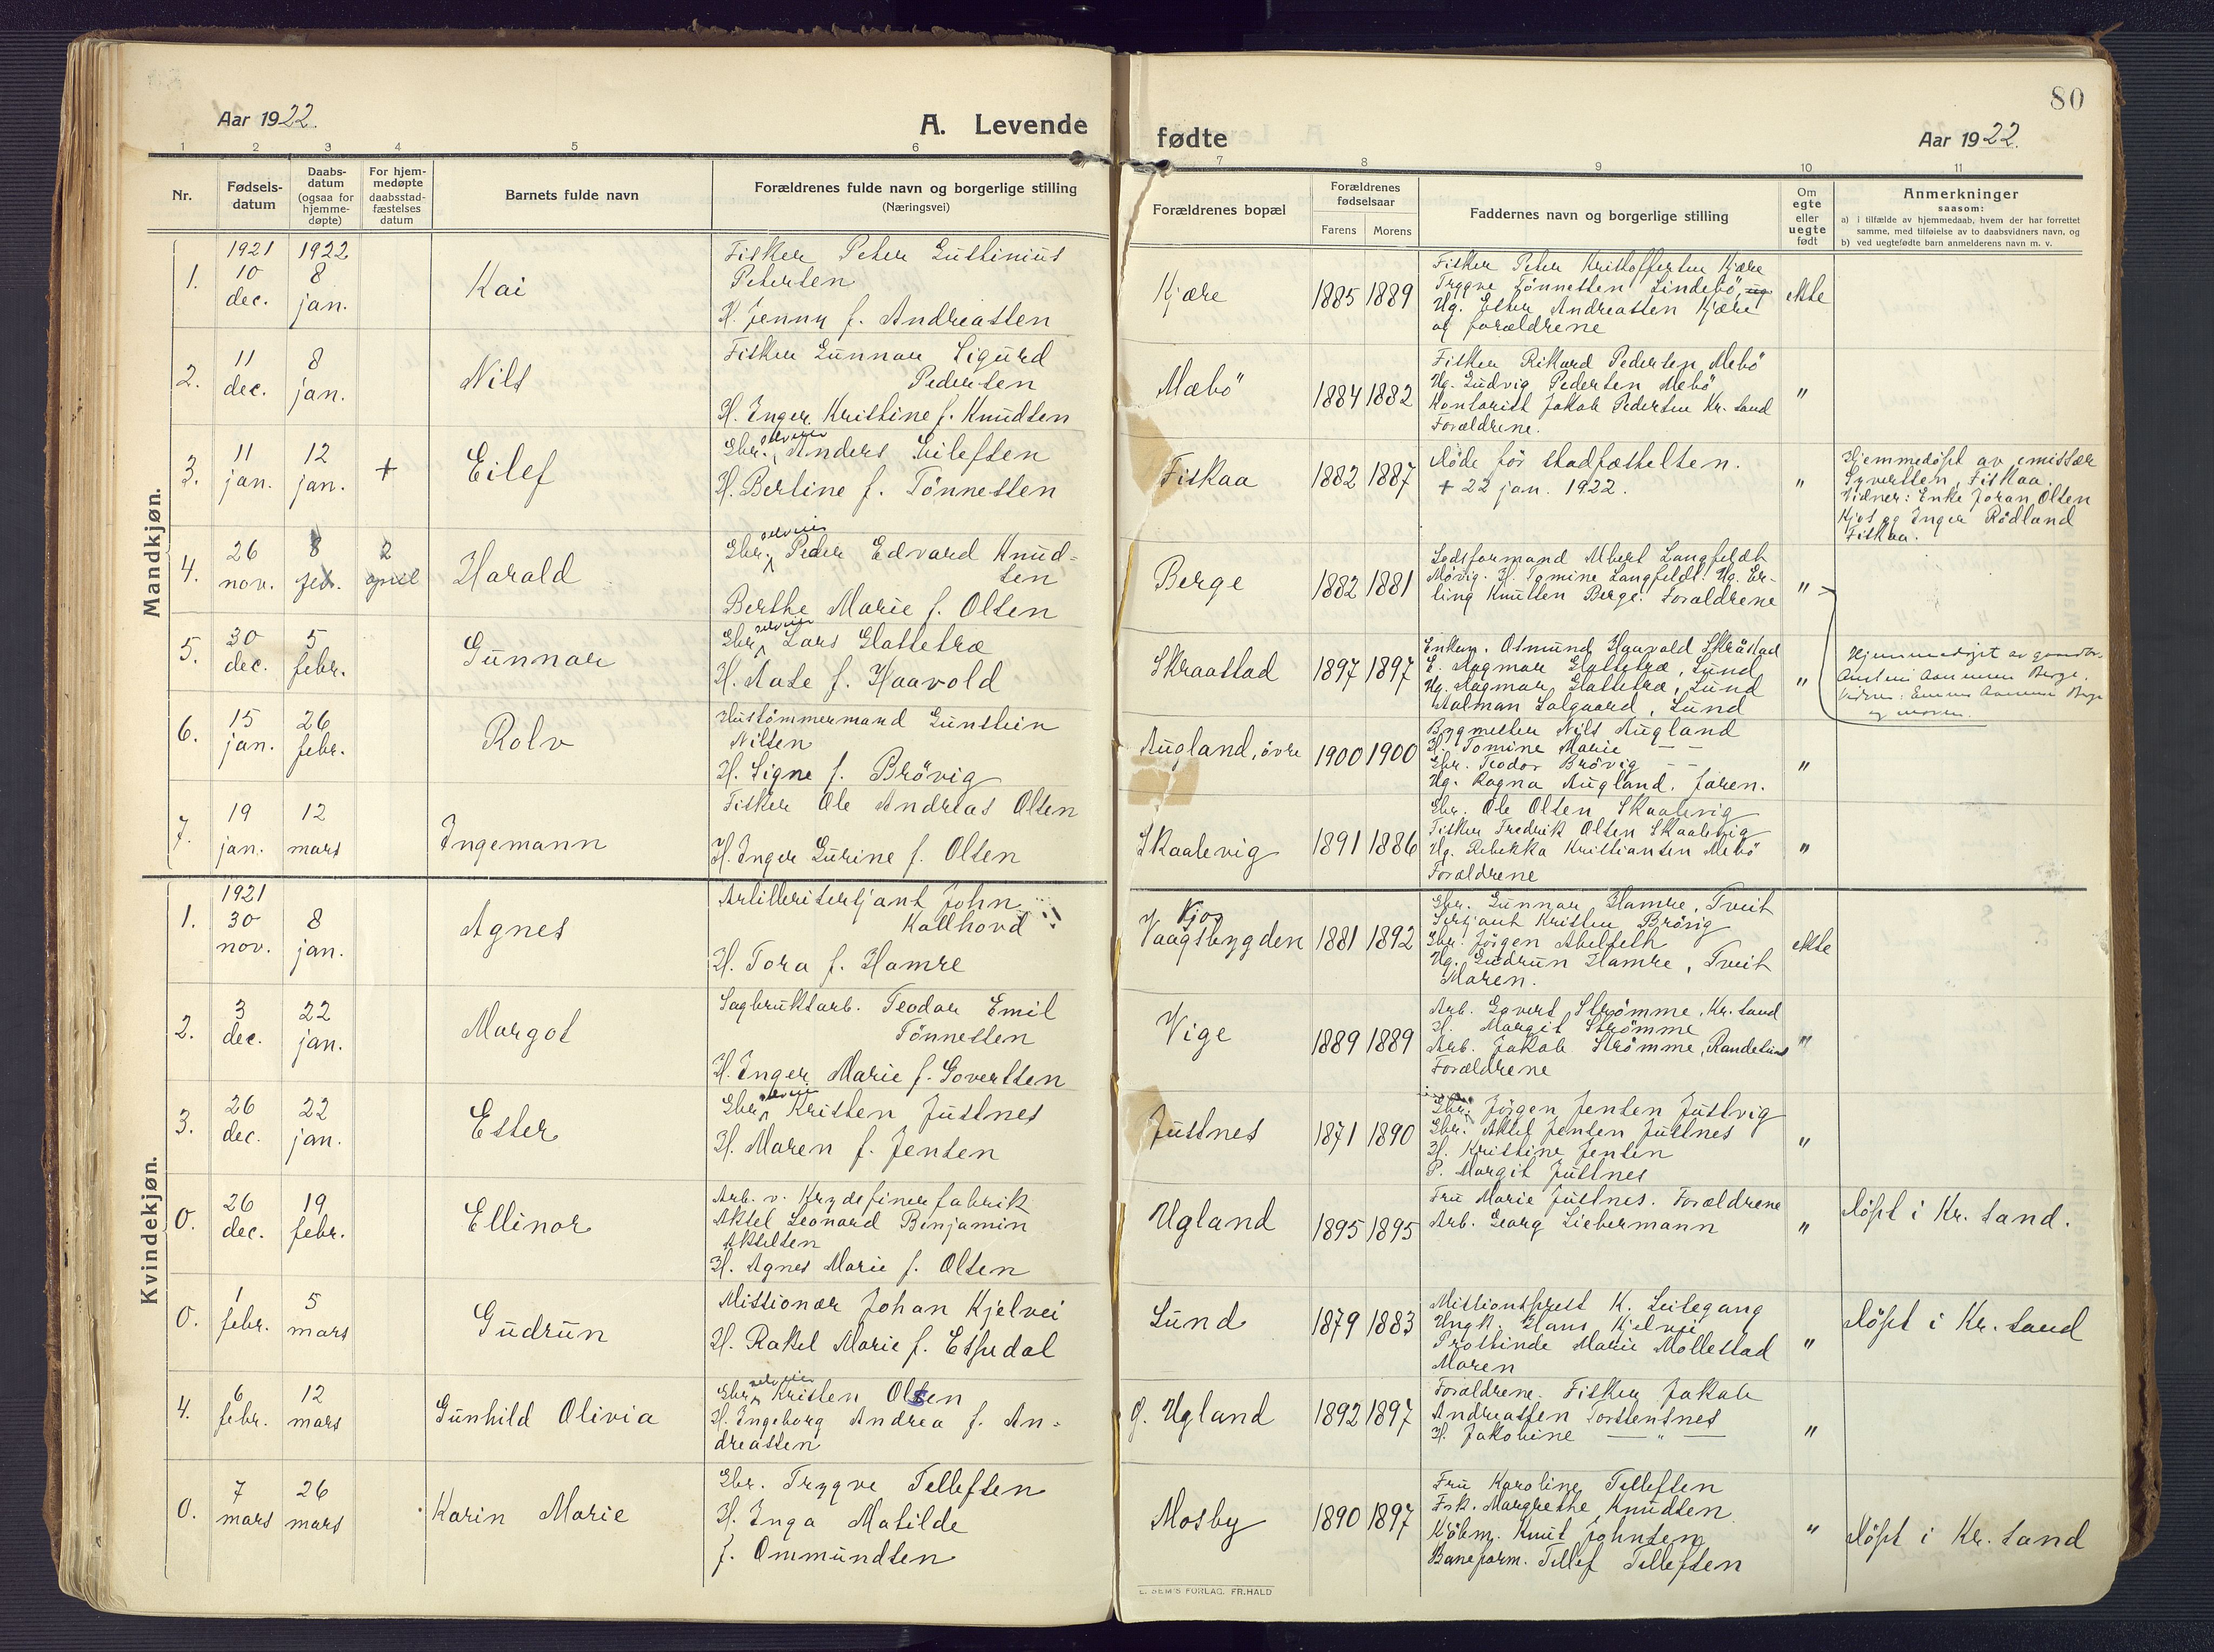 80
Aar 1922.
A. Levende
fødte
Aar 1922.
1 2 3 4 5 6
7 8 9 10 11
Nr.
Fødsels-
datum
Daabs-
datum
(ogsaa for
hjemme-
døpte)
For hjem-
medøpte
daabsstad-
fæstelses
datum
Barnets fulde navn
Forældrenes fulde navn og borgerlige stilling
(Næringsvei)
Forældrenes bopæl
Forældrenes
fødselsaar
Farens Morens
Faddernes navn og borgerlige stilling
Om
egte
eller
uegte
født
Anmerkninger
saasom:
a) i tilfælde av hjemmedaab, hvem der har forrettet
samme, med tilføielse av to daabsvidners navn, og
b) ved uegtefødte barn anmelderens navn m. v.
Mandkjøn.
1.
1921
10
dec.
1922
8
jan.
Kai
Fisker Peter Gustinius
Petersen
H. Jenny f. Andreassen
Kjære
1885 1889
Fisker Peter Kristoffersen Kjære
Trygve Tønnessen Lindebö, og
Ug. Ester Andreassen Kjære
og forældrene
ekte
2.
11
dec.
8
jan.
Nils
Fisker Gunnar Sigurd
Pedersen
H. Inger Kristine f. Knudsen
Mæbö
1884 1882
Fisker Rikard Pedersen Mebö
Ug. Ludvig Pedersen Mebö
Kontorist Jakob Pedersen Kr. sand
Forældrene.
"
3.
11
jan.
12
jan.
+
Eilef
selveier
Gbr. Anders Eilefsen
H. Berline f. Tönnessen
Fiskaa
1882 1887
Døde før stadfæstelsen.
+ 22 jan. 1922.
"
Hjemmedøpt av emissær
Syvertsen, Fiskaa.
Vidner: Enke Johan Olsen
Kjos og Inger Rödland
Fiskaa.
4.
26
nov.
8
feb.
2
april
Harald
selveier
Gbr. Peder Edvard Knud-
sen
Berthe Marie f. Olsen
Berge
1882 1881
Lodsformand Albert Langfeldt
Møvig. H. Tomine Langfeldt. Ug. Er-
ling Knutsen Berge. Forældrene
"
5.
30
dec.
5
febr.
Gunnar
selveier
Gbr. Lars Glattetræ
H. Aase f. Haavold
Skraastad
1897 1897
Enkem. Osmund Haavold Skråstad
E. Dagmar Glattetræ, Lund
Ug. Dagmar Glattetræ, Lund
Halman Solgaard, Lund
"
Hjemmedøpt av gaardbr.
Berge.
Vidner: Berge
og moren.
6.
15
jan.
26
febr.
Rolv
Hustömmermand Gunstein
Nilsen
H. Signe f. Brövig
Augland, övre
1900 1900
Bygmester Nils Augland
H. Tomine Marie — —
Gbr. Teodor Brövig — —
Ug. Ragna Augland. Faren.
"
7.
19
jan.
12
mars
Ingemann
Fisker Ole Andreas Olsen
H. Inger Gurine f. Olsen
Skaalevig
1891 1886
Gbr. Ole Olsen Skaalevig
Fisker Fredrik Olsen Skaalevig
Ug. Rebekka Kristiansen Mebö
Forældrene
"
Kvindekjøn.
1.
1921
30
nov.
8
jan.
Agnes
Artillerisersjant John
Kallhovd
H. Tora f. Hamre
Kjos
Vaagsbygden
1881 1892
Gbr. Gunnar Hamre, Tveit
Sersjant Kristen Brövig
Gbr. Jörgen Abelseth
Ug. Gudrun Hamre, Tveit
Moren.
ekte
2.
3
dec.
22
jan.
Margot
Sagbruksarb. Teodor Emil
Tönnessen
H. Inger Marie f. Govertsen
Vige
1889 1889
Arb. Govert Strømme, Kr. sand
H. Margit Strömme
Arb. Jakob Strömme, Randesund
Forældrene
"
3.
26
dec.
22
jan.
Ester
selveier
Gbr. Kristen Justnes
H. Maren f. Jensen
Justnes
1871 1890
Gbr. Jörgen Jensen Justvig
Gbr. Aksel Jensen Justnes
H. Kristine Jensen
P. Margit Justnes
"
0.
26
dec.
19
febr.
Ellinor
Arb. v. Krydsfinerfabrik
Aksel Leonard Binjamin
Akselsen
H. Agnes Marie f. Olsen
Ugland
1895 1895
Fru Marie Justnes. Forældrene
Arb. Georg Liebermann
"
Döpt i Kr. sand.
0.
1
febr.
5
mars
Gudrun
Missionær Johan Kjelvei
H. Rakel Marie f. Espedal
Lund
1879 1883
Missionsprest K. Leilegang
Ungk. Hans Kjelvei
Prostinde Marie Mollestad
Moren
"
Döpt i Kr. sand
4.
6
febr.
12
mars
Gunhild Olivia
selveier
Gbr. Kristen Olsen
H. Ingeborg Andrea f. An-
dreassen
g. Ugland
1892 1897
Forældrene. Fisker Jakob
Andreassen Torstensnes
H. Jakobine — " —
"
0.
7
mars
26
mars
Karin Marie
Gbr. Trygve Tellefsen
H. Inga Matilde
f. Ommundsen
Mosby
1890 1897
Fru Karoline Tellefsen
Frk. Margrethe Knudsen
Kjöbm. Knut Johnsen
Baneform. Tellef Tellefsen
"
Döpt i Kr. sand
E. SEM'S FORLAG, FR.HALD